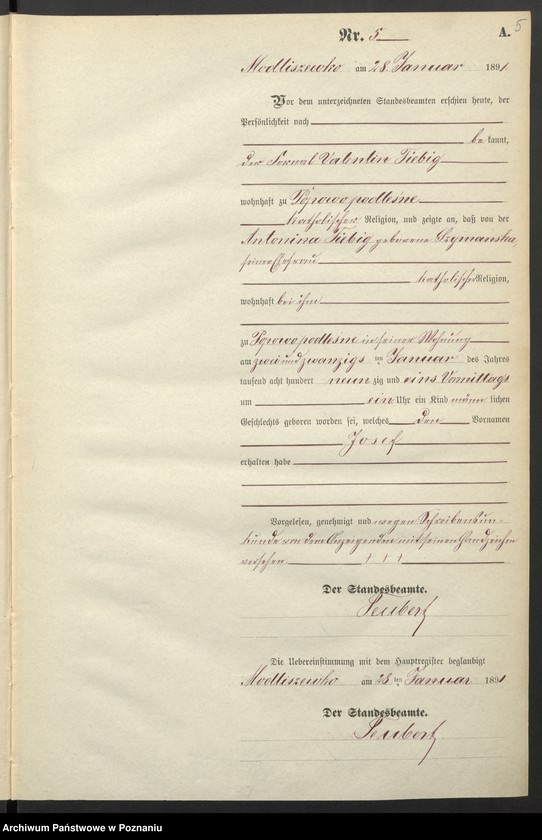 5
Nr. 5 A.
Modliszewko am 28. Januar 1891
Vor dem unterzeichneten Standesbeamten erschien heute, der
Persönlichkeit nach
be kannt,
der Fornal Valentin Fiebig
wohnhaft zu Popowo podleśne
katholischer Religion, und zeigte an, daß von der
Antonina Fiebig geborene Szymanska,
seiner Ehefrau
katholischer Religion,
wohnhaft bei ihm
zu Popowo podleśne in seiner Wohnung
am zwei und zwanzigs ten Januar des Jahres
tausend acht hundert neun zig und eins Vormittags
um ein Uhr ein Kind männ lichen
Geschlechts geboren worden sei, welches den Vornamen
Josef
erhalten habe
Vorgelesen, genehmigt und wegen Schreibensun-
kunde von dem Anzeigenden mit seinem Handzeichen
versehen. + + +
Der Standesbeamte.
Seubert
Die Uebereinstimmung mit dem Hauptregister beglaubigt
Modliszewko am 28 ten Januar 1891
Der Standesbeamte.
Seubert
Archiwum Państwowe w Poznaniu